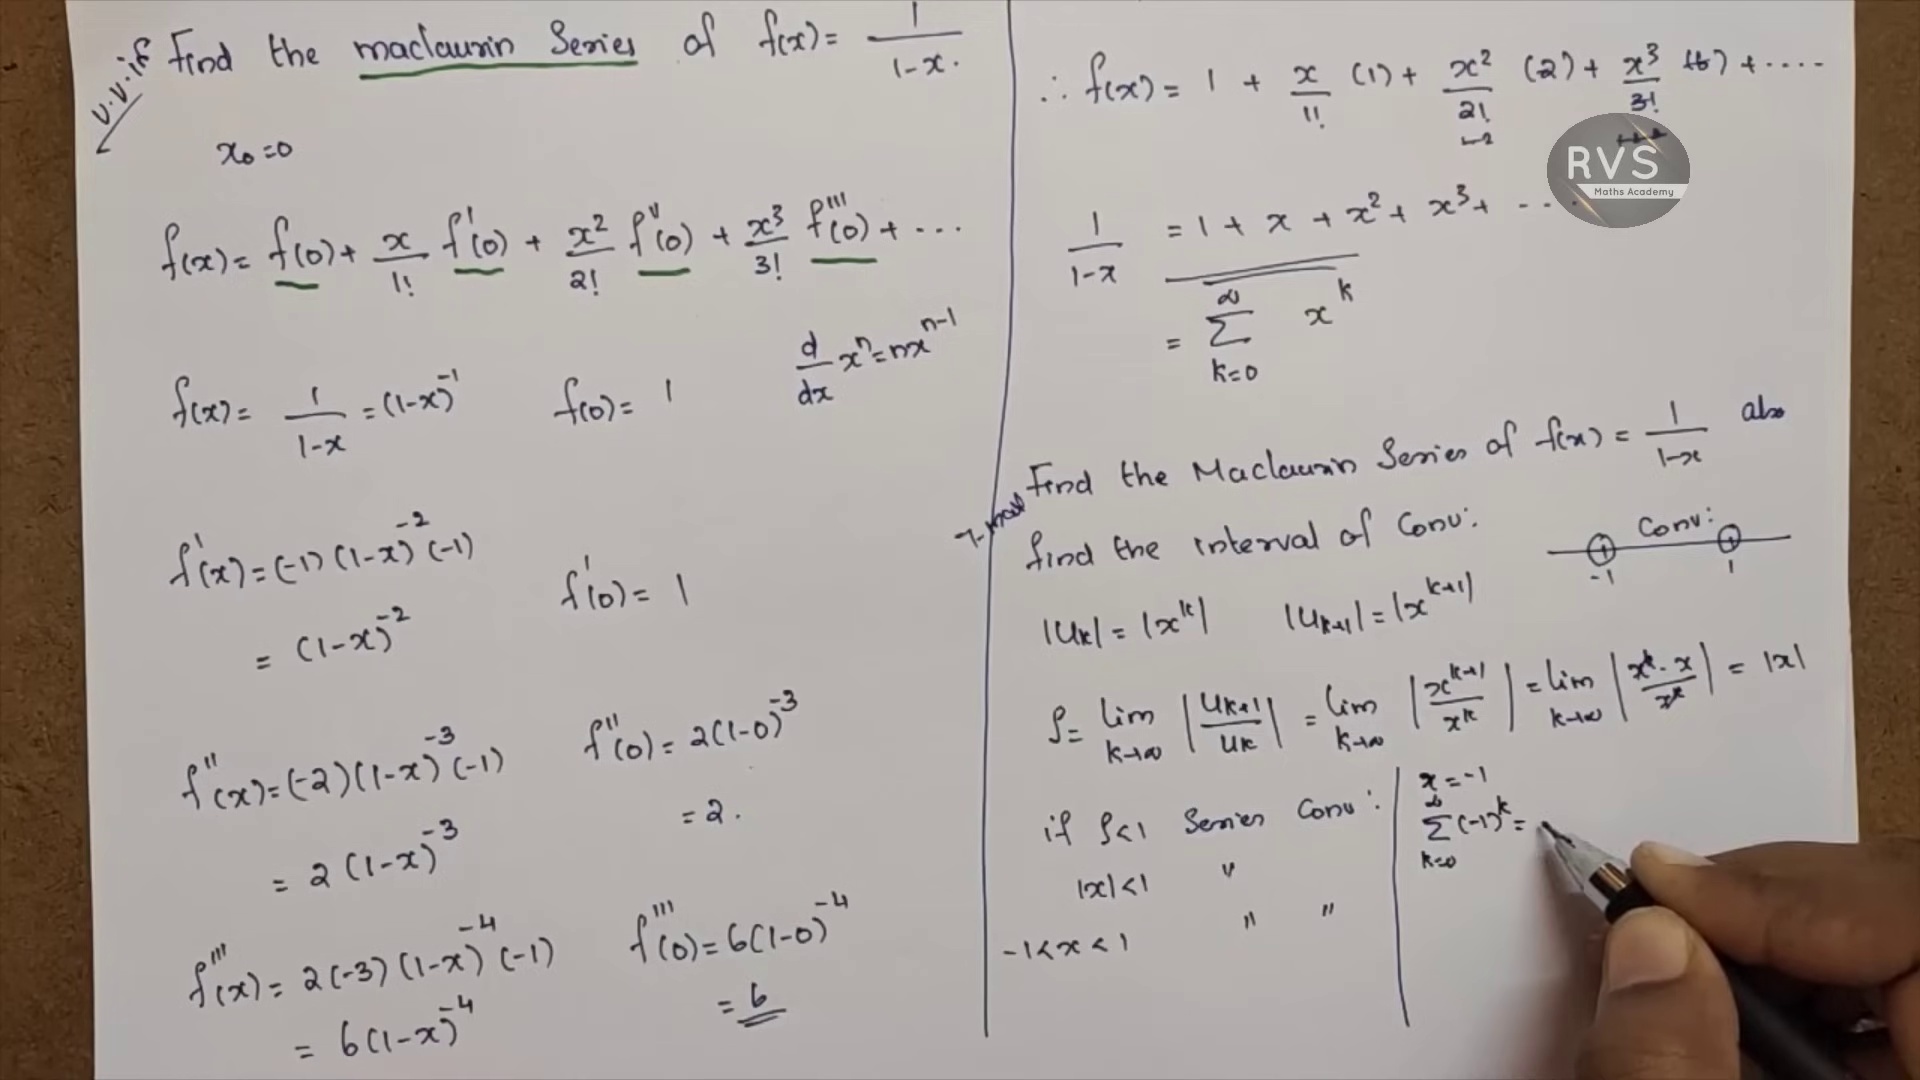 v.v.if
Find the maclaurin Series of f(x) = 1/1-x.
x₀=0
f(x) = f(0) + x/1! f'(0) + x²/2! f''(0) + x³/3! f'''(0) + ...
d/dx xⁿ = nxⁿ⁻¹
f(x) = 1/1-x = (1-x)⁻¹ f(0) = 1
f'(x) = (-1)(1-x)⁻²(-1) f'(0) = 1
= (1-x)⁻²
f''(x) = (-2)(1-x)⁻³(-1) f''(0) = 2(1-0)⁻³
= 2(1-x)⁻³ = 2.
f'''(x) = 2(-3)(1-x)⁻⁴(-1) f'''(0) = 6(1-0)⁻⁴
= 6(1-x)⁻⁴ = 6
∴ f(x) = 1 + x/1! (1) + x²/2! (2) + x³/3! (6) + ....
RVS
Maths Academy
1/1-x = 1 + x + x² + x³ + ....
= ∞ Σ k=0 xᵏ
Find the Maclaurin Series of f(x) = 1/1-x also
find the interval of Conv:
Conv:
-1 1
|Uₖ| = |xᵏ| |Uₖ₊₁| = |xᵏ⁺¹|
ρ = lim k→∞ |Uₖ₊₁/Uₖ| = lim k→∞ |xᵏ⁺¹/xᵏ| = lim k→∞ |xᵏ·x/xᵏ| = |x|
if ρ<1 Series Conv:
|x|<1 "
-1<x<1 " "
x = -1
∞ Σ k=0 (-1)ᵏ =